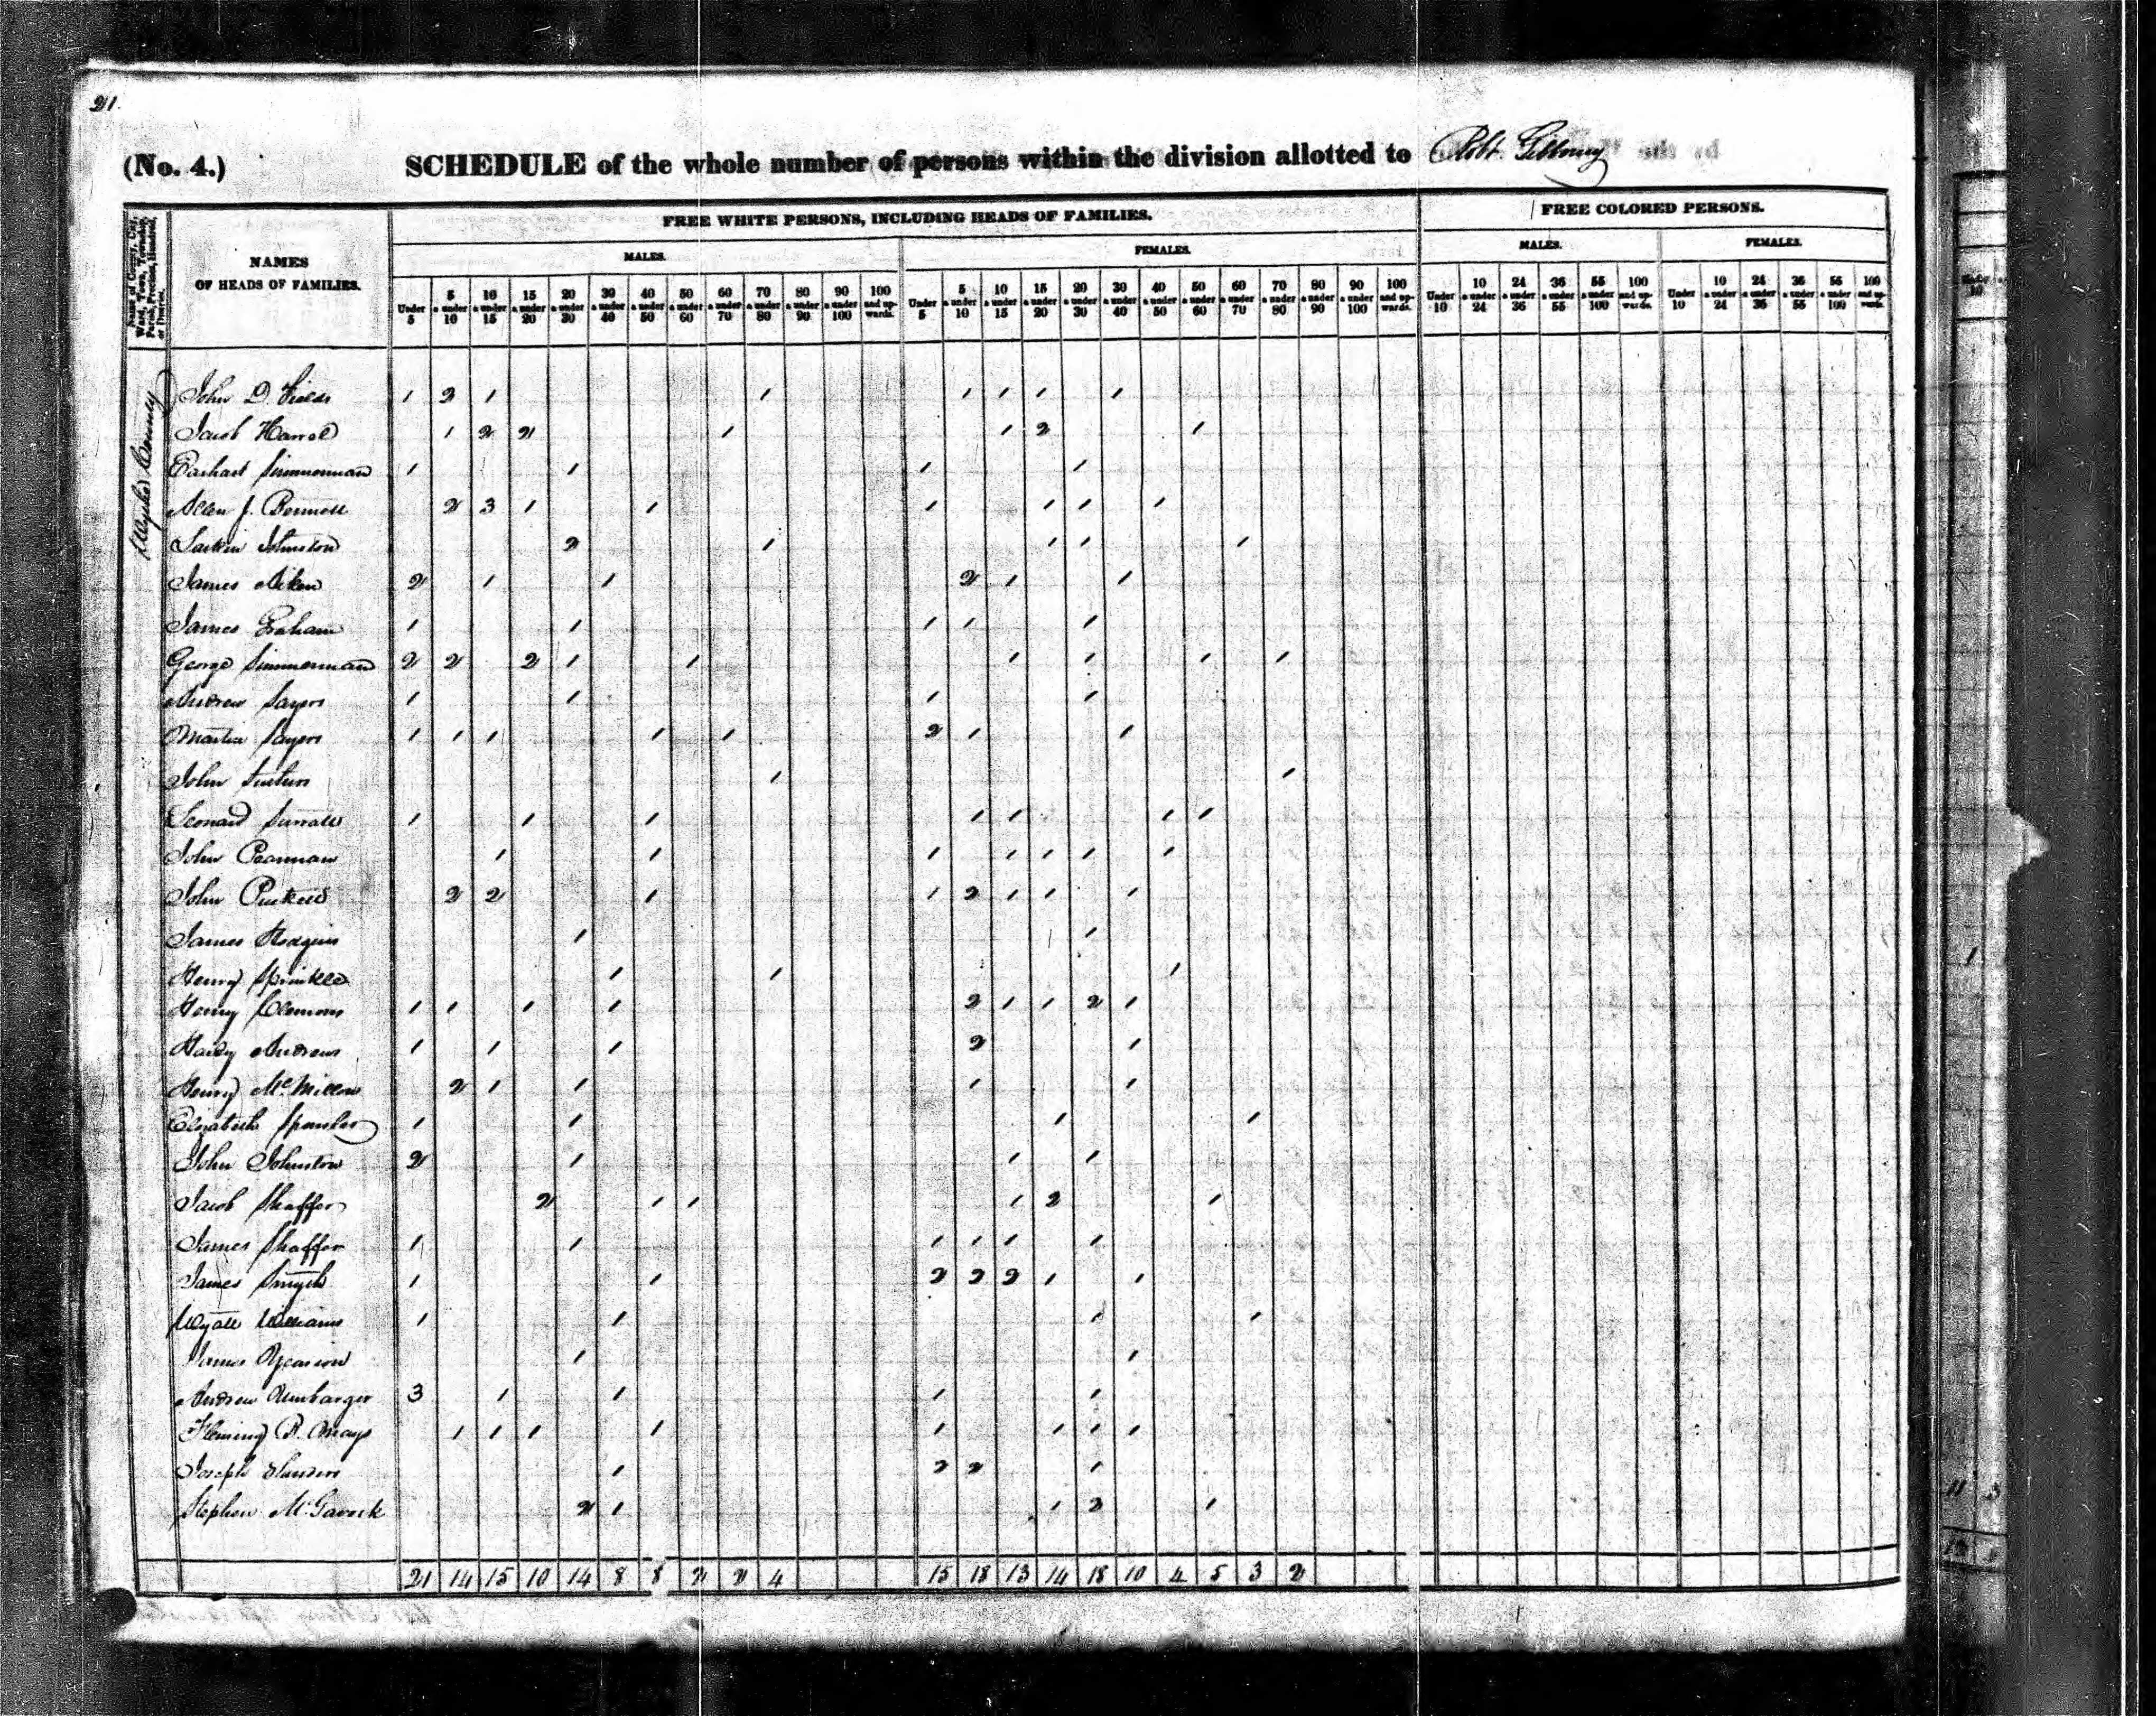 21.
(No. 4.) SCHEDULE of the whole number of persons within the division allotted to Robt. Gibboney
Name of County, City, Ward, Town, Township, Parish, Precinct, Hundred, or District.
NAMES OF HEADS OF FAMILIES.
FREE WHITE PERSONS, INCLUDING HEADS OF FAMILIES.
FREE COLORED PERSONS.
MALES. FEMALES. MALES. FEMALES.
Under 5 | 5 & under 10 | 10 & under 15 | 15 & under 20 | 20 & under 30 | 30 & under 40 | 40 & under 50 | 50 & under 60 | 60 & under 70 | 70 & under 80 | 80 & under 90 | 90 & under 100 | 100 and upwards. | Under 5 | 5 & under 10 | 10 & under 15 | 15 & under 20 | 20 & under 30 | 30 & under 40 | 40 & under 50 | 50 & under 60 | 60 & under 70 | 70 & under 80 | 80 & under 90 | 90 & under 100 | 100 and upwards. | Under 10 | 10 & under 24 | 24 & under 36 | 36 & under 55 | 55 & under 100 | 100 and upwards. | Under 10 | 10 & under 24 | 24 & under 36 | 36 & under 55 | 55 & under 100 | 100 and upwards.
Wythe County
John D. Fields 1 2 1 1 1 1 1 1
Jacob Harrol 1 2 2 1 1 2 1
Earhart Simmerman 1 1 1 1
Allen J. Bennett 2 3 1 1 1 1 1 1
Larkin Johnston 2 1 1 1 1
James Aiken 2 1 1 2 1 1
James Graham 1 1 1 1 1
George Simmerman 2 2 2 1 1 1 1 1 1
Andrew Sayers 1 1 1 1
Martin Sayers 1 1 1 1 1 2 1 1
John 1 1
Leonard 1 1 1 1 1 1 1
John Pearman 1 1 1 1 1 1 1
John Puckett 2 2 1 1 2 1 1 1
James Hodgins 1 1
Henry Sprinkle 1 1 1
Henry Clemons 1 1 1 1 2 1 1 2 1
Hardy Andrews 1 1 1 2 1
Henry McMillow 2 1 1 1 1
Elizabeth 1 1 1 1
John Johnston 2 1 1 1
Jacob Shaffer 2 1 1 1 2 1
James Shaffer 1 1 1 1 1 1
James Smyth 1 1 2 2 2 1 1
Wyatt Williams 1 1 1 1
James 1 1
Andrew Umbarger 3 1 1 1 1
Fleming B. Mays 1 1 1 1 1 1 1 1
Joseph 1 2 2 1
Stephen McGavock 2 1 1 2 1
21 14 15 10 14 8 8 2 2 4 15 18 13 14 18 10 4 5 3 2